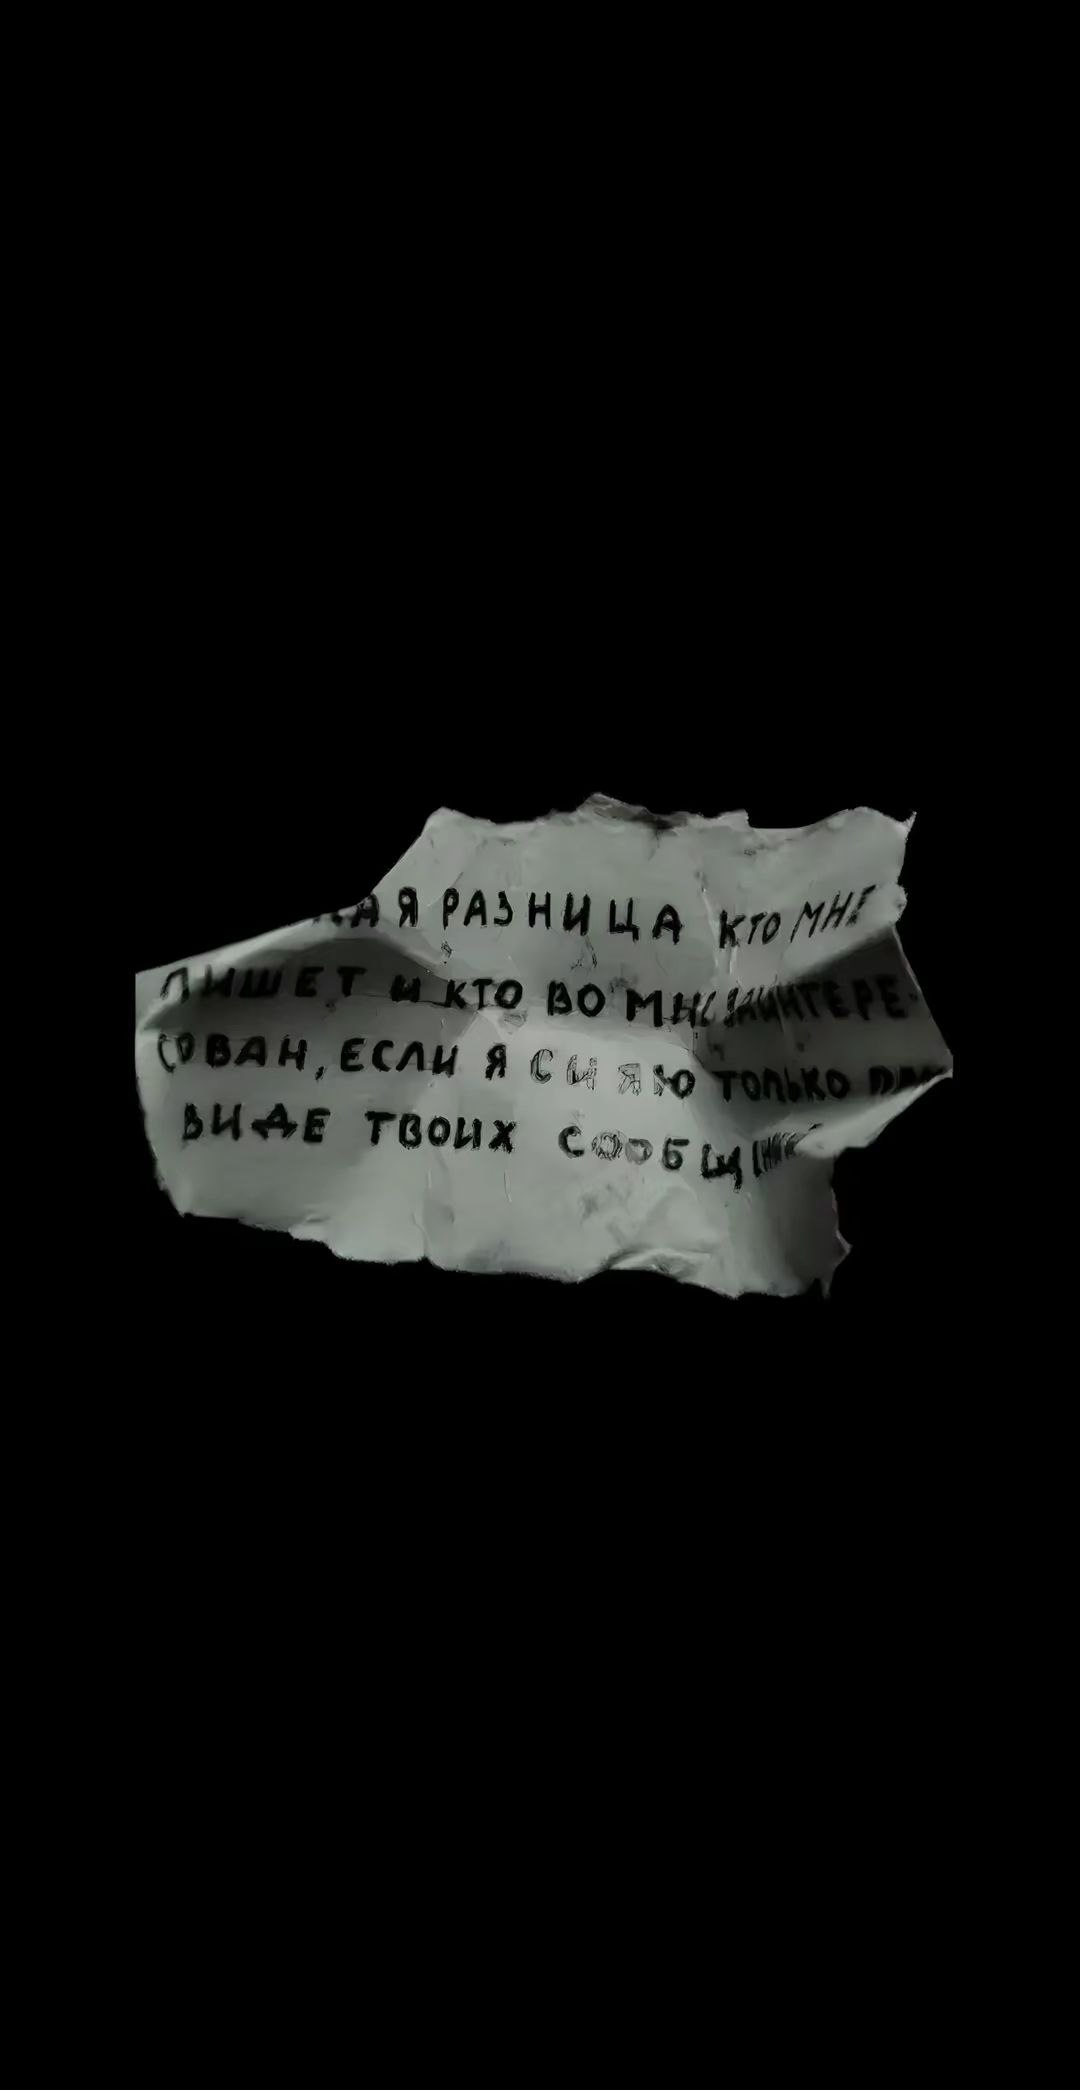 РАЗНИЦА КТО МНЕ
ПИШЕТ И КТО ВО МНЕ ЗАИНТЕРЕ-
СОВАН, ЕСЛИ Я СИЯЮ ТОЛЬКО ПРИ
ВИДЕ ТВОИХ